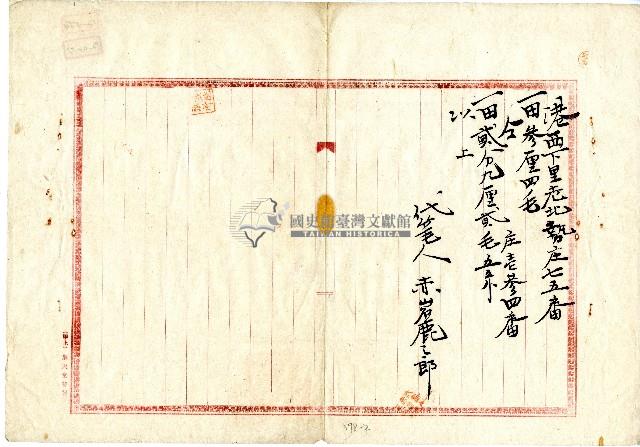 港西下里老北勢庄七五番
一田參厘四毛
仝 庄壱參四番
一田貳分九厘貳毛五糸
以上
代筆人 赤岩鹿之郎
國史館臺灣文獻館
TAIWAN HISTORICA
398-2